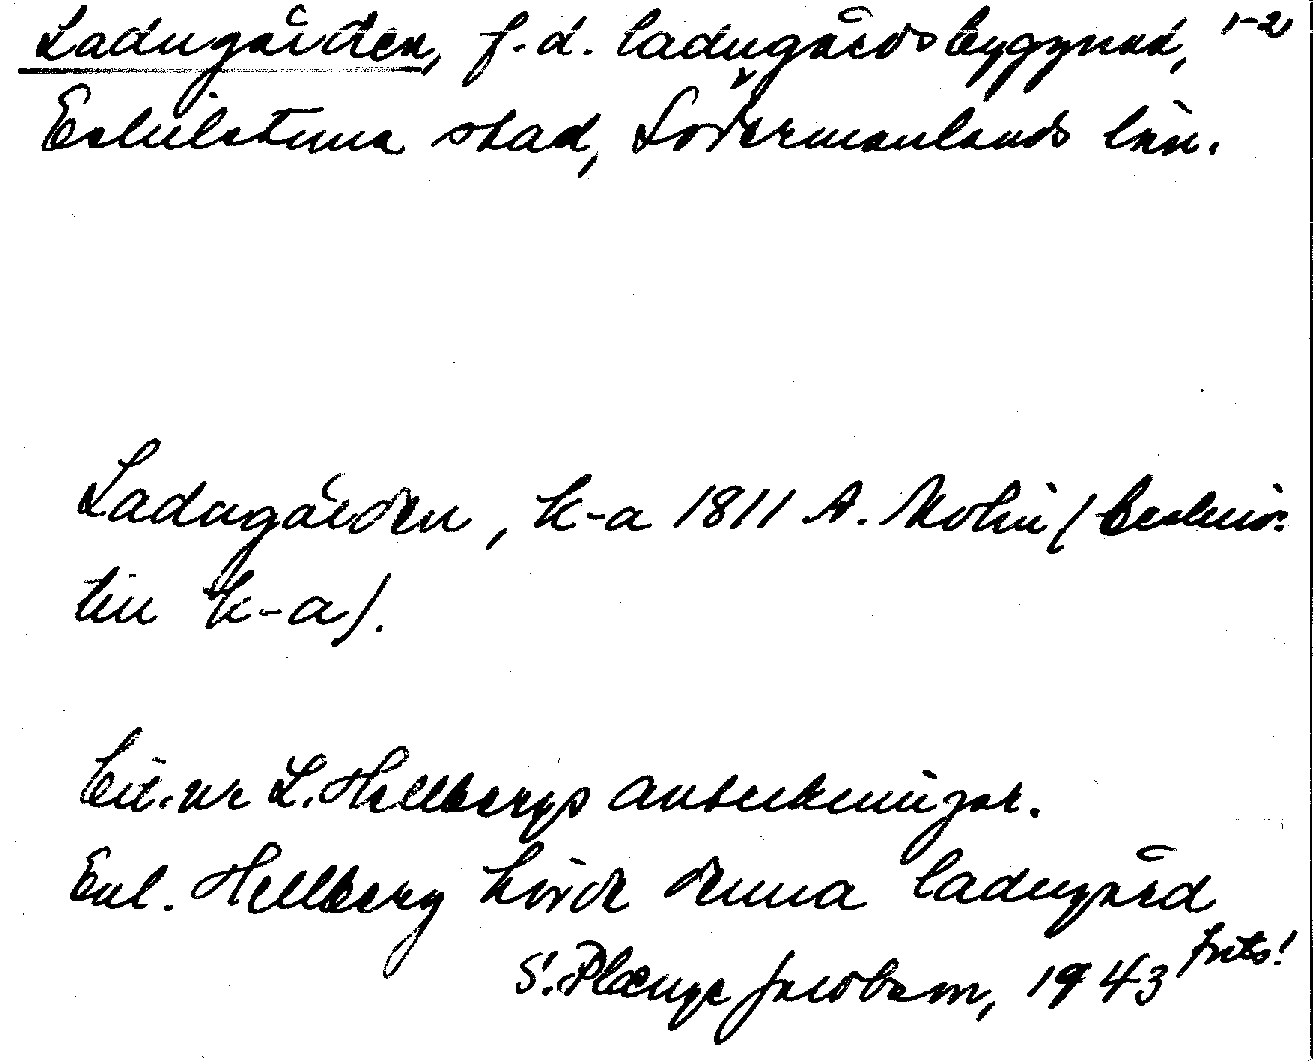 Ladugården, f.d. ladugårdsbyggnad, 1-2
Eskilstuna stad, Södermanlands län.
Ladugården, k-a 1811 A. Molin (beskriv.
till k-a).
Cit. ur L. Hellbergs anteckningar.
Enl. Hellberg hörde denna ladugård
forts!
S. Plænge Jacobson, 1943